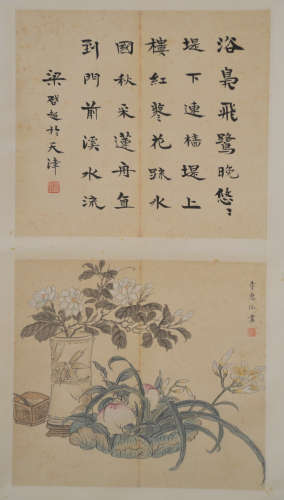 浴鳧飛鷺晚悠〻
堤下連檣堤上
樓紅蓼花疏水
國秋采蓮舟直
到門前溪水流
梁啓超於天津